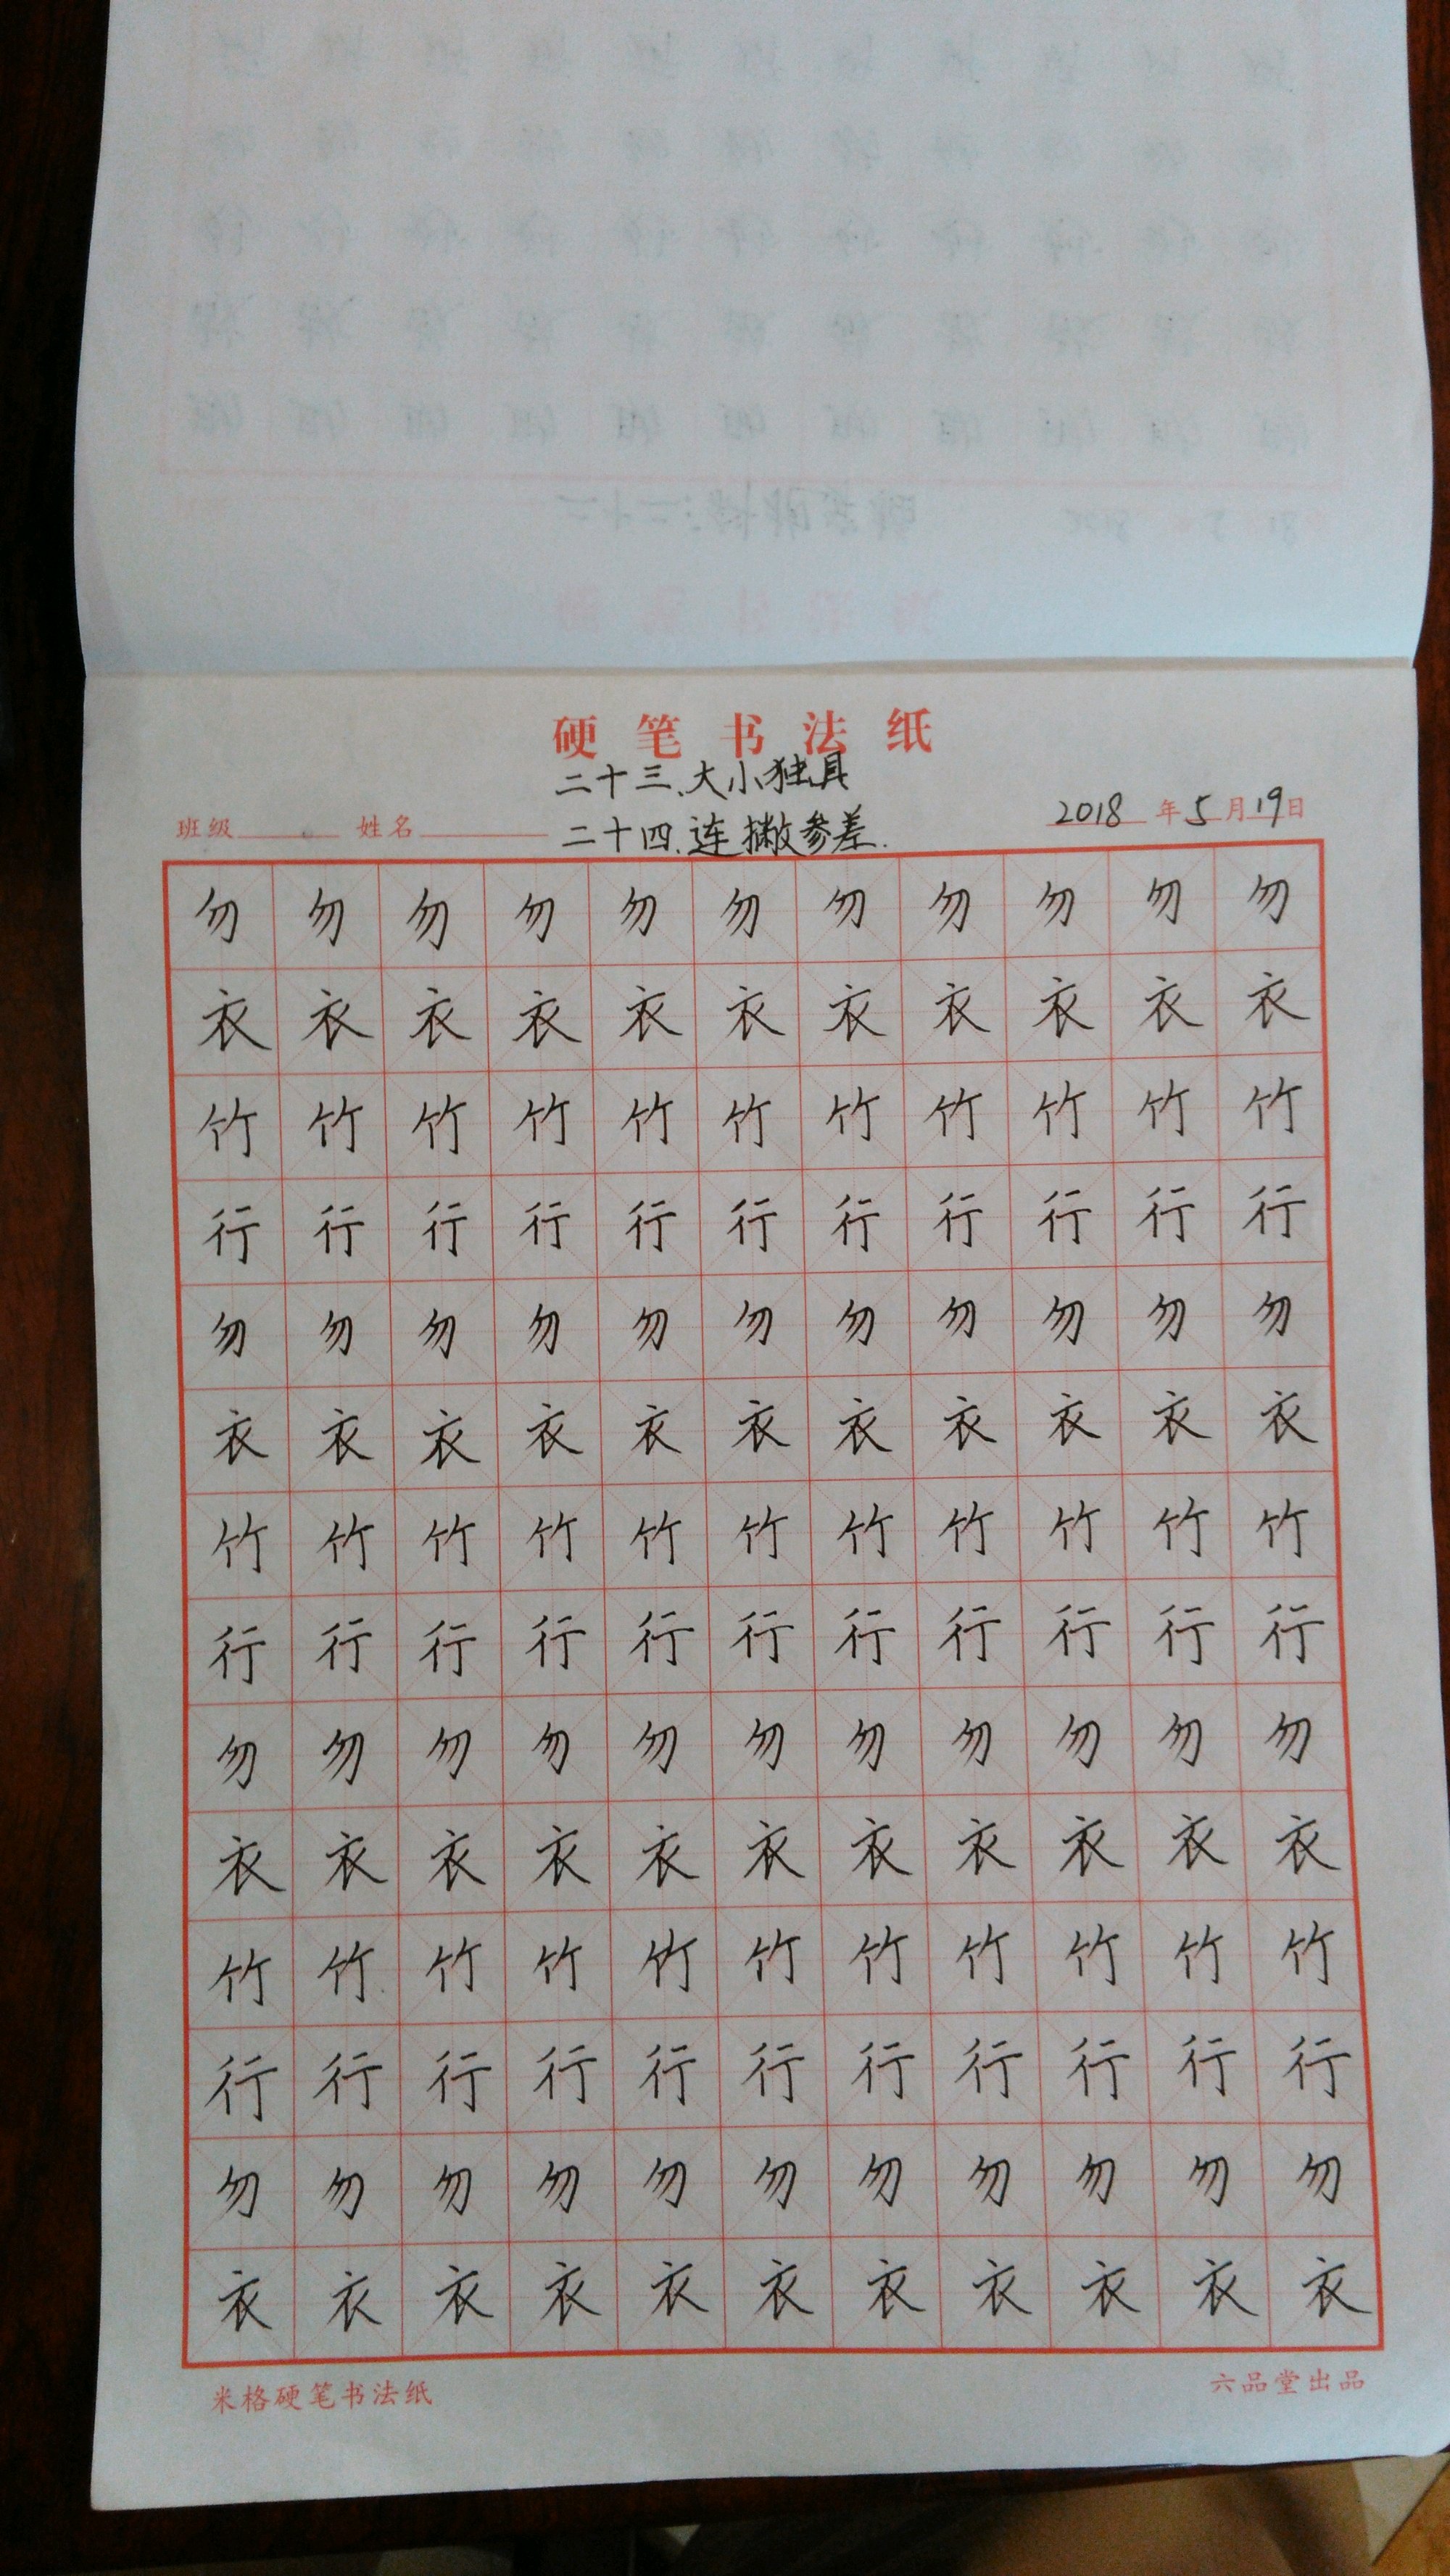 硬笔书法纸
二十三、大小独具
班级 姓名 二十四、连撇参差. 2018年5月19日
勿勿勿勿勿勿勿勿勿勿勿
衣衣衣衣衣衣衣衣衣衣衣
竹竹竹竹竹竹竹竹竹竹竹
行行行行行行行行行行行
勿勿勿勿勿勿勿勿勿勿勿
衣衣衣衣衣衣衣衣衣衣衣
竹竹竹竹竹竹竹竹竹竹竹
行行行行行行行行行行行
勿勿勿勿勿勿勿勿勿勿勿
衣衣衣衣衣衣衣衣衣衣衣
竹竹竹竹竹竹竹竹竹竹竹
行行行行行行行行行行行
勿勿勿勿勿勿勿勿勿勿勿
衣衣衣衣衣衣衣衣衣衣衣
米格硬笔书法纸 六品堂出品